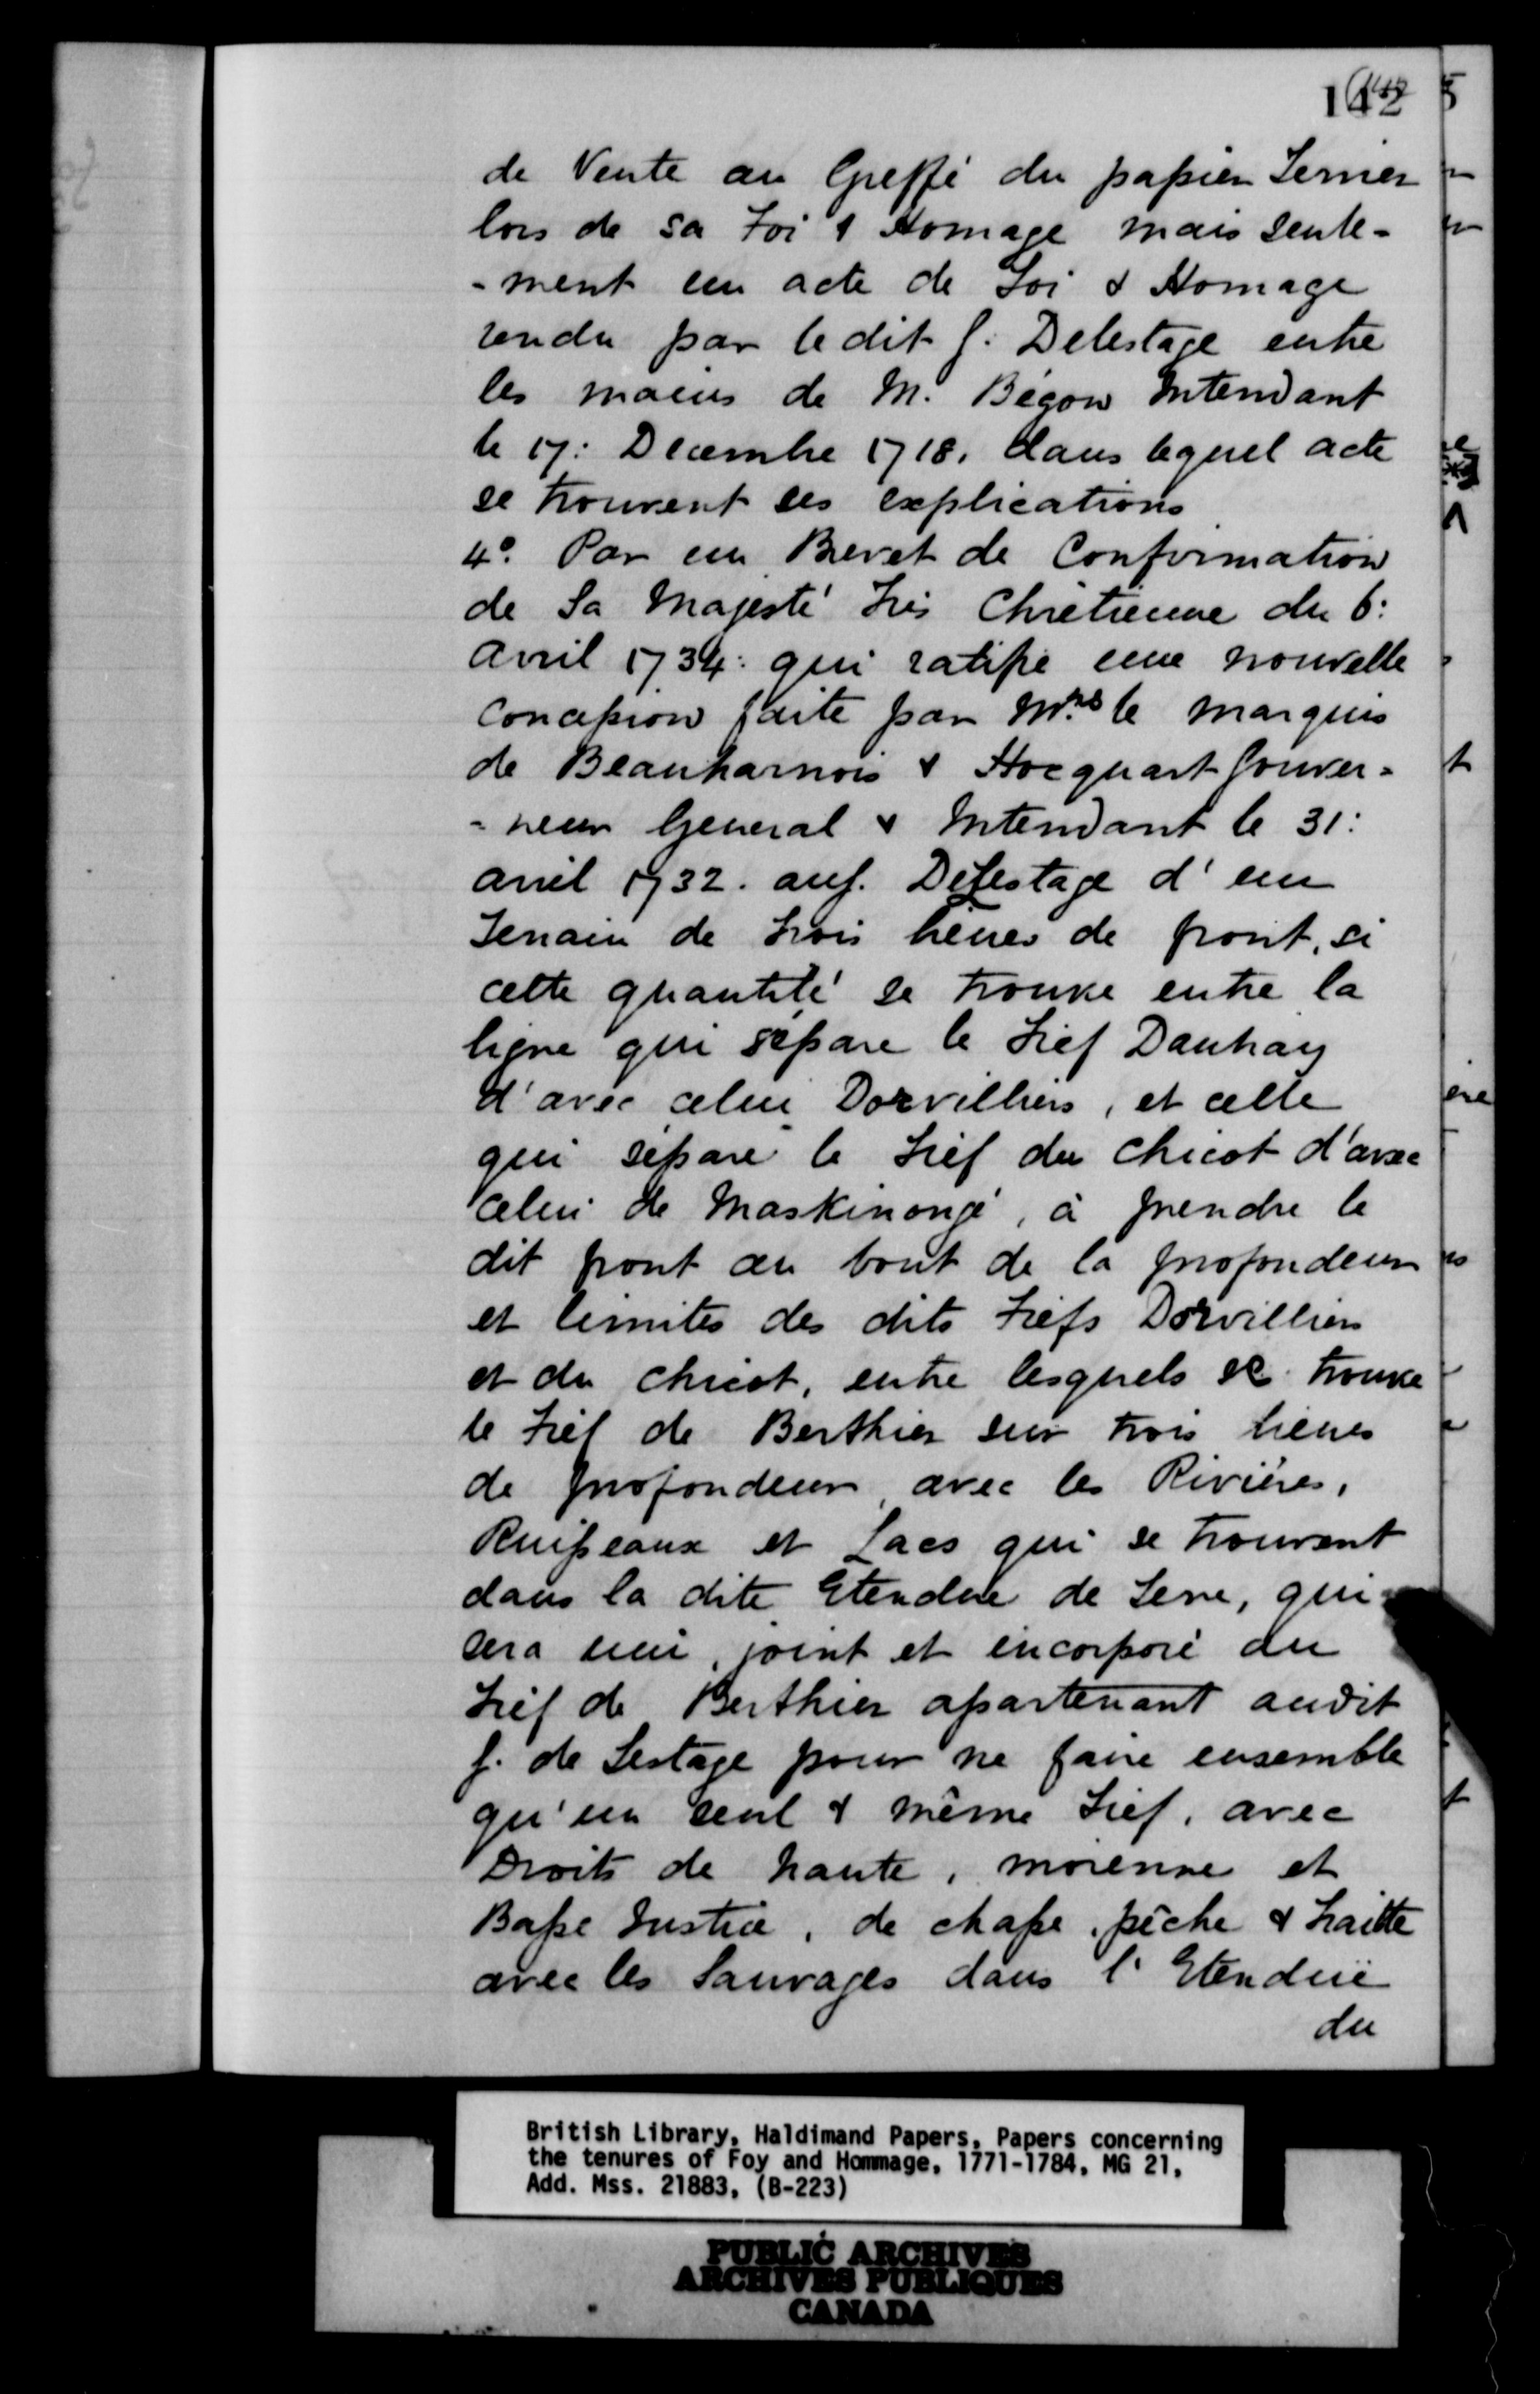 142
de Vente au Greffé du papier Terrier
lors de sa Foi & Homage mais seule-
-ment un acte de Foi & Homage
rendu par le dit S. Delestage entre
les mains de M. Bégon Intendant
le 17: Decembre 1718. dans lequel acte
se trouvent ses explications
4º. Par un Brevet de Confirmation
de Sa Majesté Très Chrétienne du 6:
avril 1734: qui ratifie une nouvelle
Concession faite par Mrs le Marquis
de Beauharnois & Hocquart Gouver-
-neur General & Intendant le 31:
avril 1732. au S. Delestage d'un
Terrain de trois lieues de front, si
cette quantité se trouve entre la
ligne qui sépare le Fief Dautray
d'avec celui Dorvilliers, et celle
qui sépare le Fief du Chicot d'avec
celui de Maskinongé, à prendre le
dit front au bout de la profondeur
et limites des dits Fiefs Dorvilliers
et du Chicot, entre lesquels se trouve
le Fief de Berthier sur trois lieues
de profondeur, avec les Rivières,
Ruisseaux et Lacs qui se trouvent
dans la dite Etendue de Terre, qui
sera uni, joint et incorporé au
Fief de Berthier apartenant audit
S. de Lestage pour ne faire ensemble
qu'un seul & même Fief, avec
Droits de haute, moienne et
Basse Justice, de chasse, pêche & traitte
avec les Sauvages dans l'Etendüe
du
British Library, Haldimand Papers, Papers concerning
the tenures of Foy and Hommage, 1771-1784, MG 21,
Add. Mss. 21883, (B-223)
PUBLIC ARCHIVES
ARCHIVES PUBLIQUES
CANADA